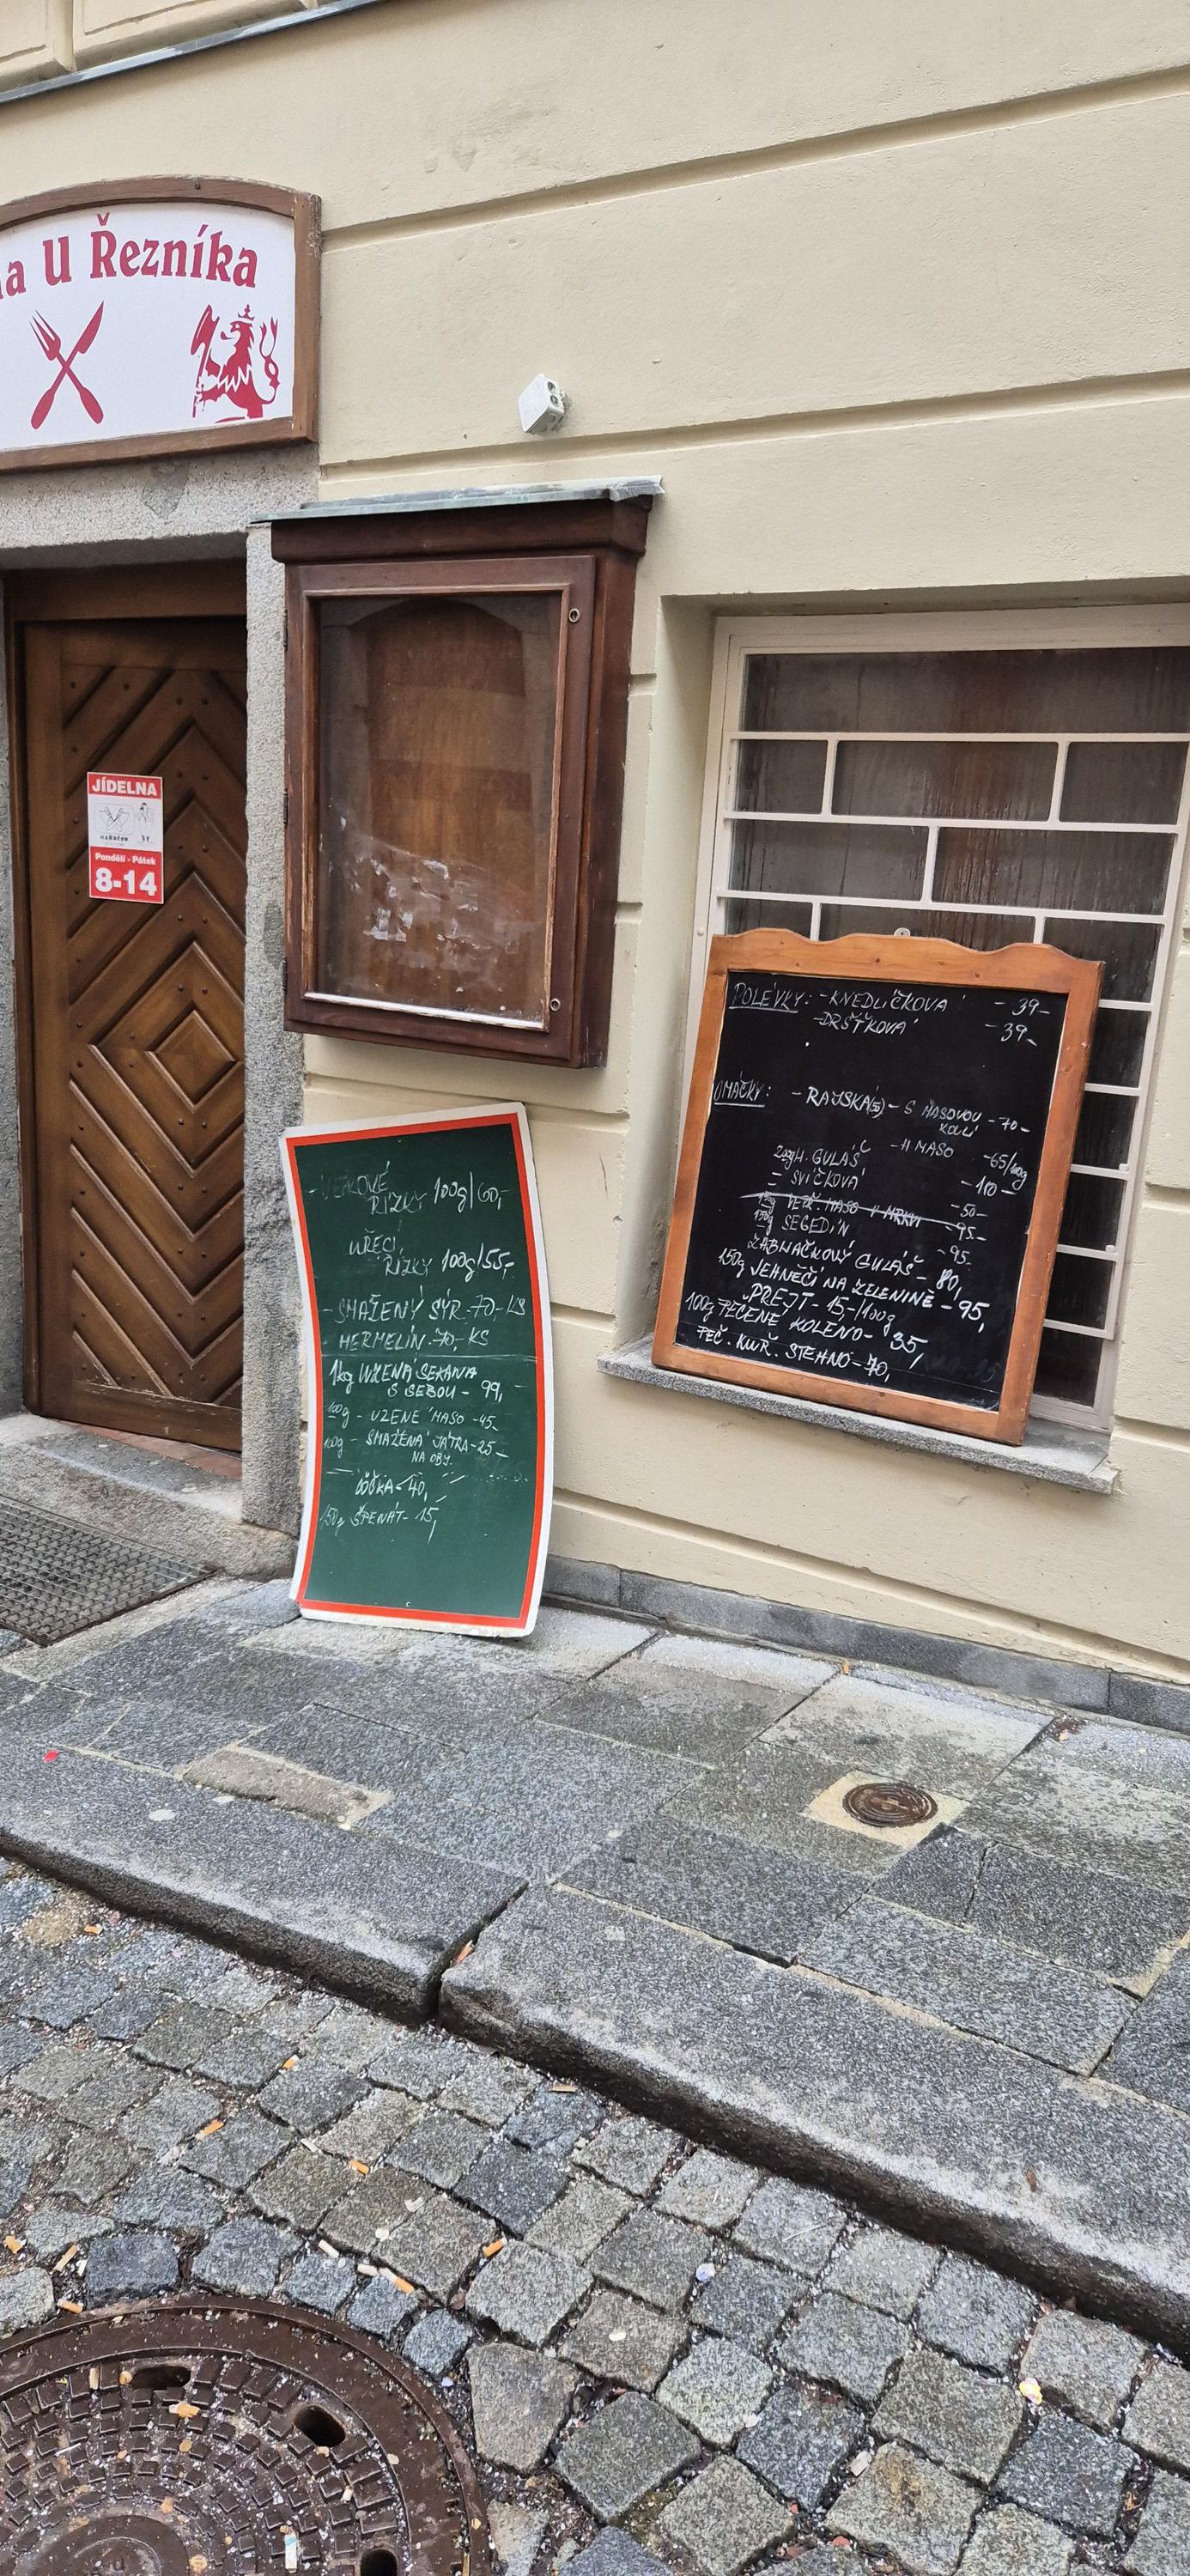 U Řezníka
JÍDELNA
Pondělí - Pátek
8-14
POLÉVKY: - KNEDLÍČKOVÁ - 39-
- DRŠŤKOVÁ - 39-
OMÁČKY: - RAJSKÁ(5) - S MASOVOU - 70-
KOULÍ
- H MASO - 65/100g
GULÁŠ - 110 -
SVÍČKOVÁ - 50-
VEPŘ. MASO V MRKVI - 95-
SEGEDÍN - 95-
ŽABMAČKOVÝ GULÁŠ - 80,
150g JEHNĚČÍ NA ZELENINĚ - 95,
PREJT - 15,-/100g
100g PEČENÉ KOLENO - 35,
PEČ. KUŘ. STEHNO - 70,
ŘÍZKY 100g/60,-
ŘÍZKY 100g/55,-
- SMAŽENÝ SÝR - 70,- KS
- HERMELÍN - 70,- KS
1kg UZENÁ SEKANÁ
S SEBOU - 99,-
100g - UZENÉ MASO - 45-
100g - SMAŽENÁ JÁTRA - 25-
NA OBY.
ČOČKA - 40,
150g ŠPENÁT - 15,